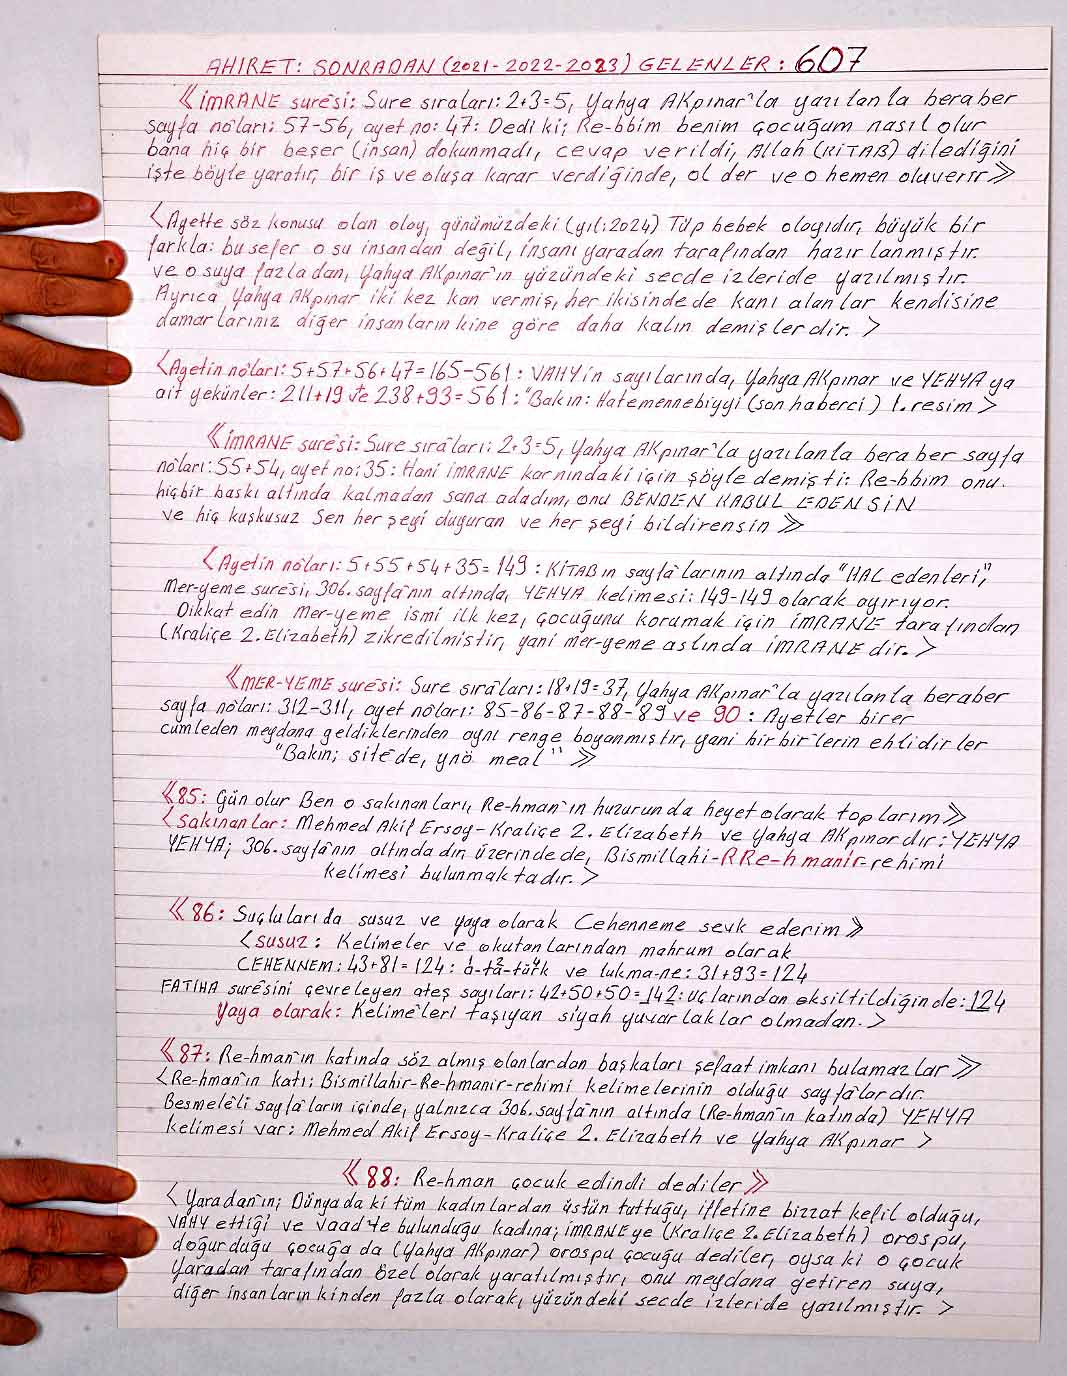 AHIRET: SONRADAN (2021-2022-2023) GELENLER: 607
《İMRANE suresi: Sure sıraları: 2+3=5, Yahya AKpınar'la yazılanla beraber
sayfa noları: 57-56, ayet no: 47: Dedi ki; Re-bbim benim çocuğum nasıl olur
bana hiç bir beşer (insan) dokunmadı, cevap verildi, Allah (KİTAB) dilediğini
işte böyle yaratır, bir iş ve oluşa karar verdiğinde, ol der ve o hemen oluverir》
<Ayette söz konusu olan olay, günümüzdeki (yılı 2024) Tüp bebek olayıdır, büyük bir
farkla: bu sefer o su insandan değil, insanı yaradan tarafından hazırlanmıştır.
ve o suya fazladan, Yahya AKpınar'ın yüzündeki secde izleride yazılmıştır.
Ayrıca Yahya AKpınar iki kez kan vermiş, her ikisinde de kanı alanlar kendisine
damarlarınız diğer insanlarınkine göre daha kalın demişlerdir.>
<Ayetin noları: 5+57+56+47=165-561: VAHY'in sayılarında, Yahya AKpınar ve YEHYA ya
ait yekünler: 211+19 ve 238+93=561: "Bakın: Hatemennebiyyi (son haberci) 1. resim>
《İMRANE suresi: Sure sıraları: 2+3=5, Yahya AKpınar'la yazılanla beraber sayfa
noları: 55+54, ayet no: 35: Hani İMRANE karnındaki için şöyle demişti: Re-bbim onu
hiçbir baskı altında kalmadan sana adadım, onu BENDEN KABUL EDENSİN
ve hiç kuşkusuz Sen her şeyi duyuran ve her şeyi bildirensin》
<Ayetin noları: 5+55+54+35=149: KİTABın sayfalarının altında "HAL edenleri,"
Mer-yeme suresi, 306. sayfanın altında, YEHYA kelimesi: 149-149 olarak ayırıyor.
Dikkat edin Mer-yeme ismi ilk kez, çocuğunu korumak için İMRANE tarafından
(Kraliçe 2. Elizabeth) zikredilmiştir, yani mer-yeme aslında İMRANE dir.>
《MER-YEME suresi: Sure sıraları: 18+19=37, Yahya AKpınar'la yazılanla beraber
sayfa noları: 312-311, ayet noları: 85-86-87-88-89 ve 90: Ayetler birer
cümleden meydana geldiklerinden aynı renge boyanmıştır, yani birbir'lerin ehlidirler
"Bakın; sitede, ynö meal" 》
《85: Gün olur Ben o sakınanları, Re-hman'ın huzurunda heyet olarak toplarım》
<Sakınanlar: Mehmed Akif Ersoy-Kraliçe 2. Elizabeth ve Yahya AKpınardır: YEHYA
YEHYA; 306. sayfanın altındadır, üzerinde de, Bismillahi-RRe-hmanir-rehimi
kelimesi bulunmaktadır.>
《86: Suçluları da susuz ve yaya olarak Cehenneme sevk ederim》
<susuz: Kelimeler ve okutanlarından mahrum olarak
CEHENNEM: 43+81=124: a-ta-türk ve lukma-ne: 31+93=124
FATİHA suresini çevreleyen ateş sayıları: 42+50+50=142: uçlarından eksiltildiğinde: 124
Yaya olarak: Kelimeleri taşıyan siyah yuvarlaklar olmadan.>
《87: Re-hman'ın katında söz almış olanlardan başkaları şefaat imkanı bulamazlar》
<Re-hman'ın katı: Bismillahir-Re-hmanir-rehimi kelimelerinin olduğu sayfalardır.
Besmeleli sayfaların içinde, yalnızca 306. sayfanın altında (Re-hman'ın katında) YEHYA
kelimesi var: Mehmed Akif Ersoy-Kraliçe 2. Elizabeth ve Yahya AKpınar >
《88: Re-hman çocuk edindi dediler》
<Yaradan'ın; Dünyada ki tüm kadınlardan üstün tuttuğu, iffetine bizzat kefil olduğu,
VAHY ettiği ve vaad'te bulunduğu kadına; İMRANE ye (Kraliçe 2. Elizabeth) orospu,
doğurduğu çocuğa da (Yahya AKpınar) orospu çocuğu dediler, oysa ki o çocuk
Yaradan tarafından özel olarak yaratılmıştır, onu meydana getiren suya,
diğer insanlarınkinden fazla olarak, yüzündeki secde izleride yazılmıştır. >